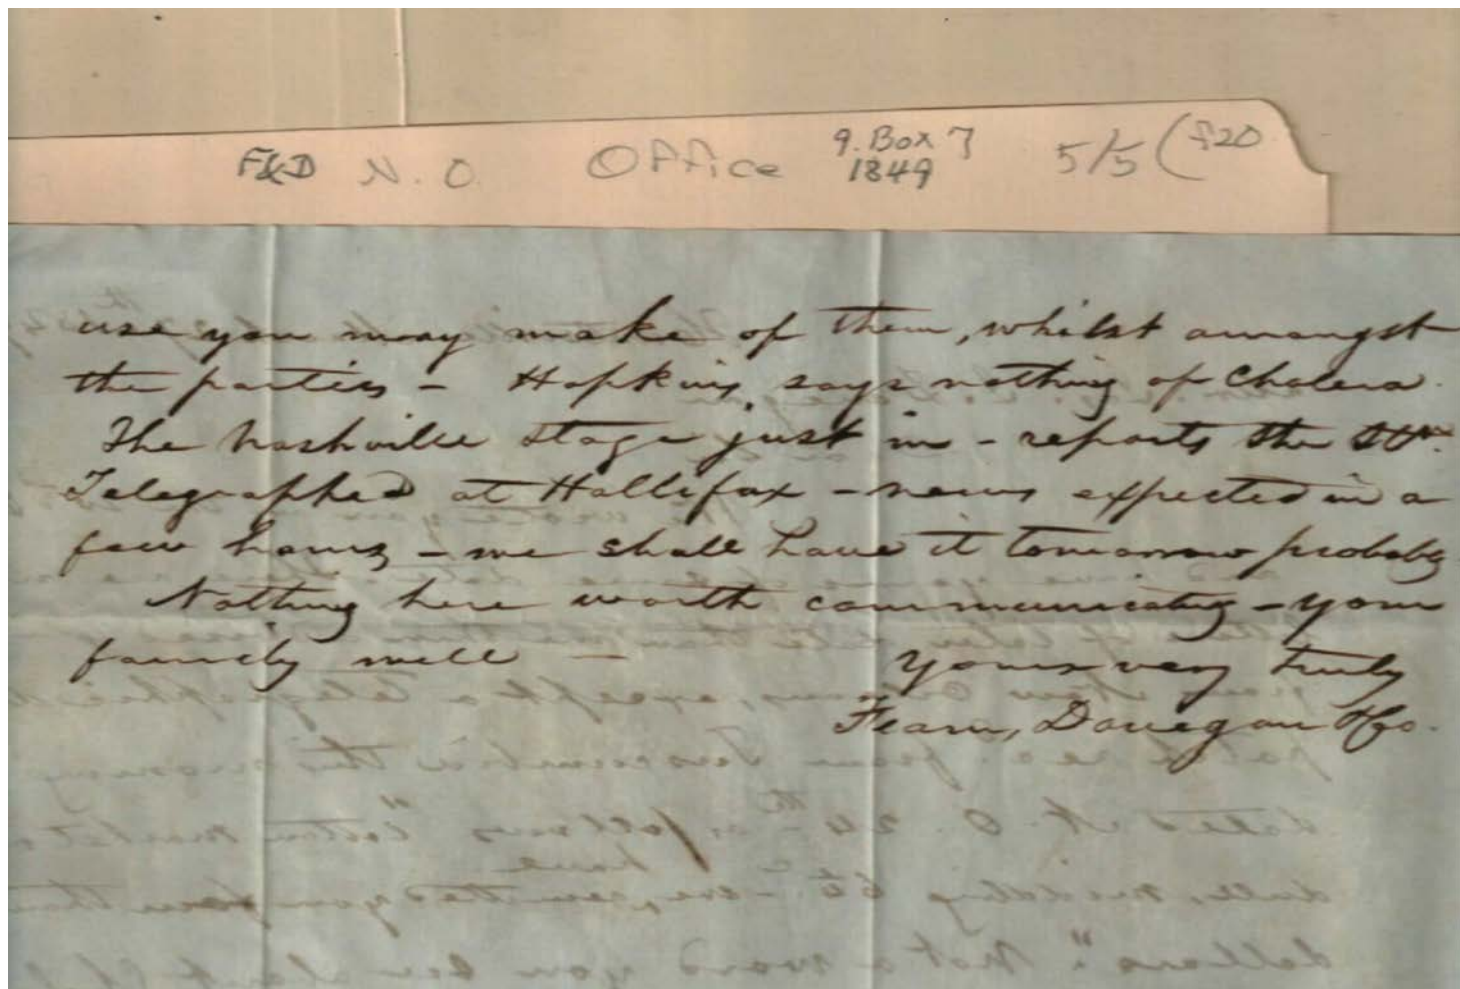 F&D N. O. Office 9. Box 7 5/5 (f20
1849
use you may make of them, whilst amongst
the parties - Hopkins, says nothing of Cholera.
The Nashville stage just in - reports the Str.
Telegraphed at Hallifax - news expected in a
few hours - we shall have it tomorrow probably
Nothing here worth communicating - your
family well -
Yours very truly
Fearn, Donegan & Co.